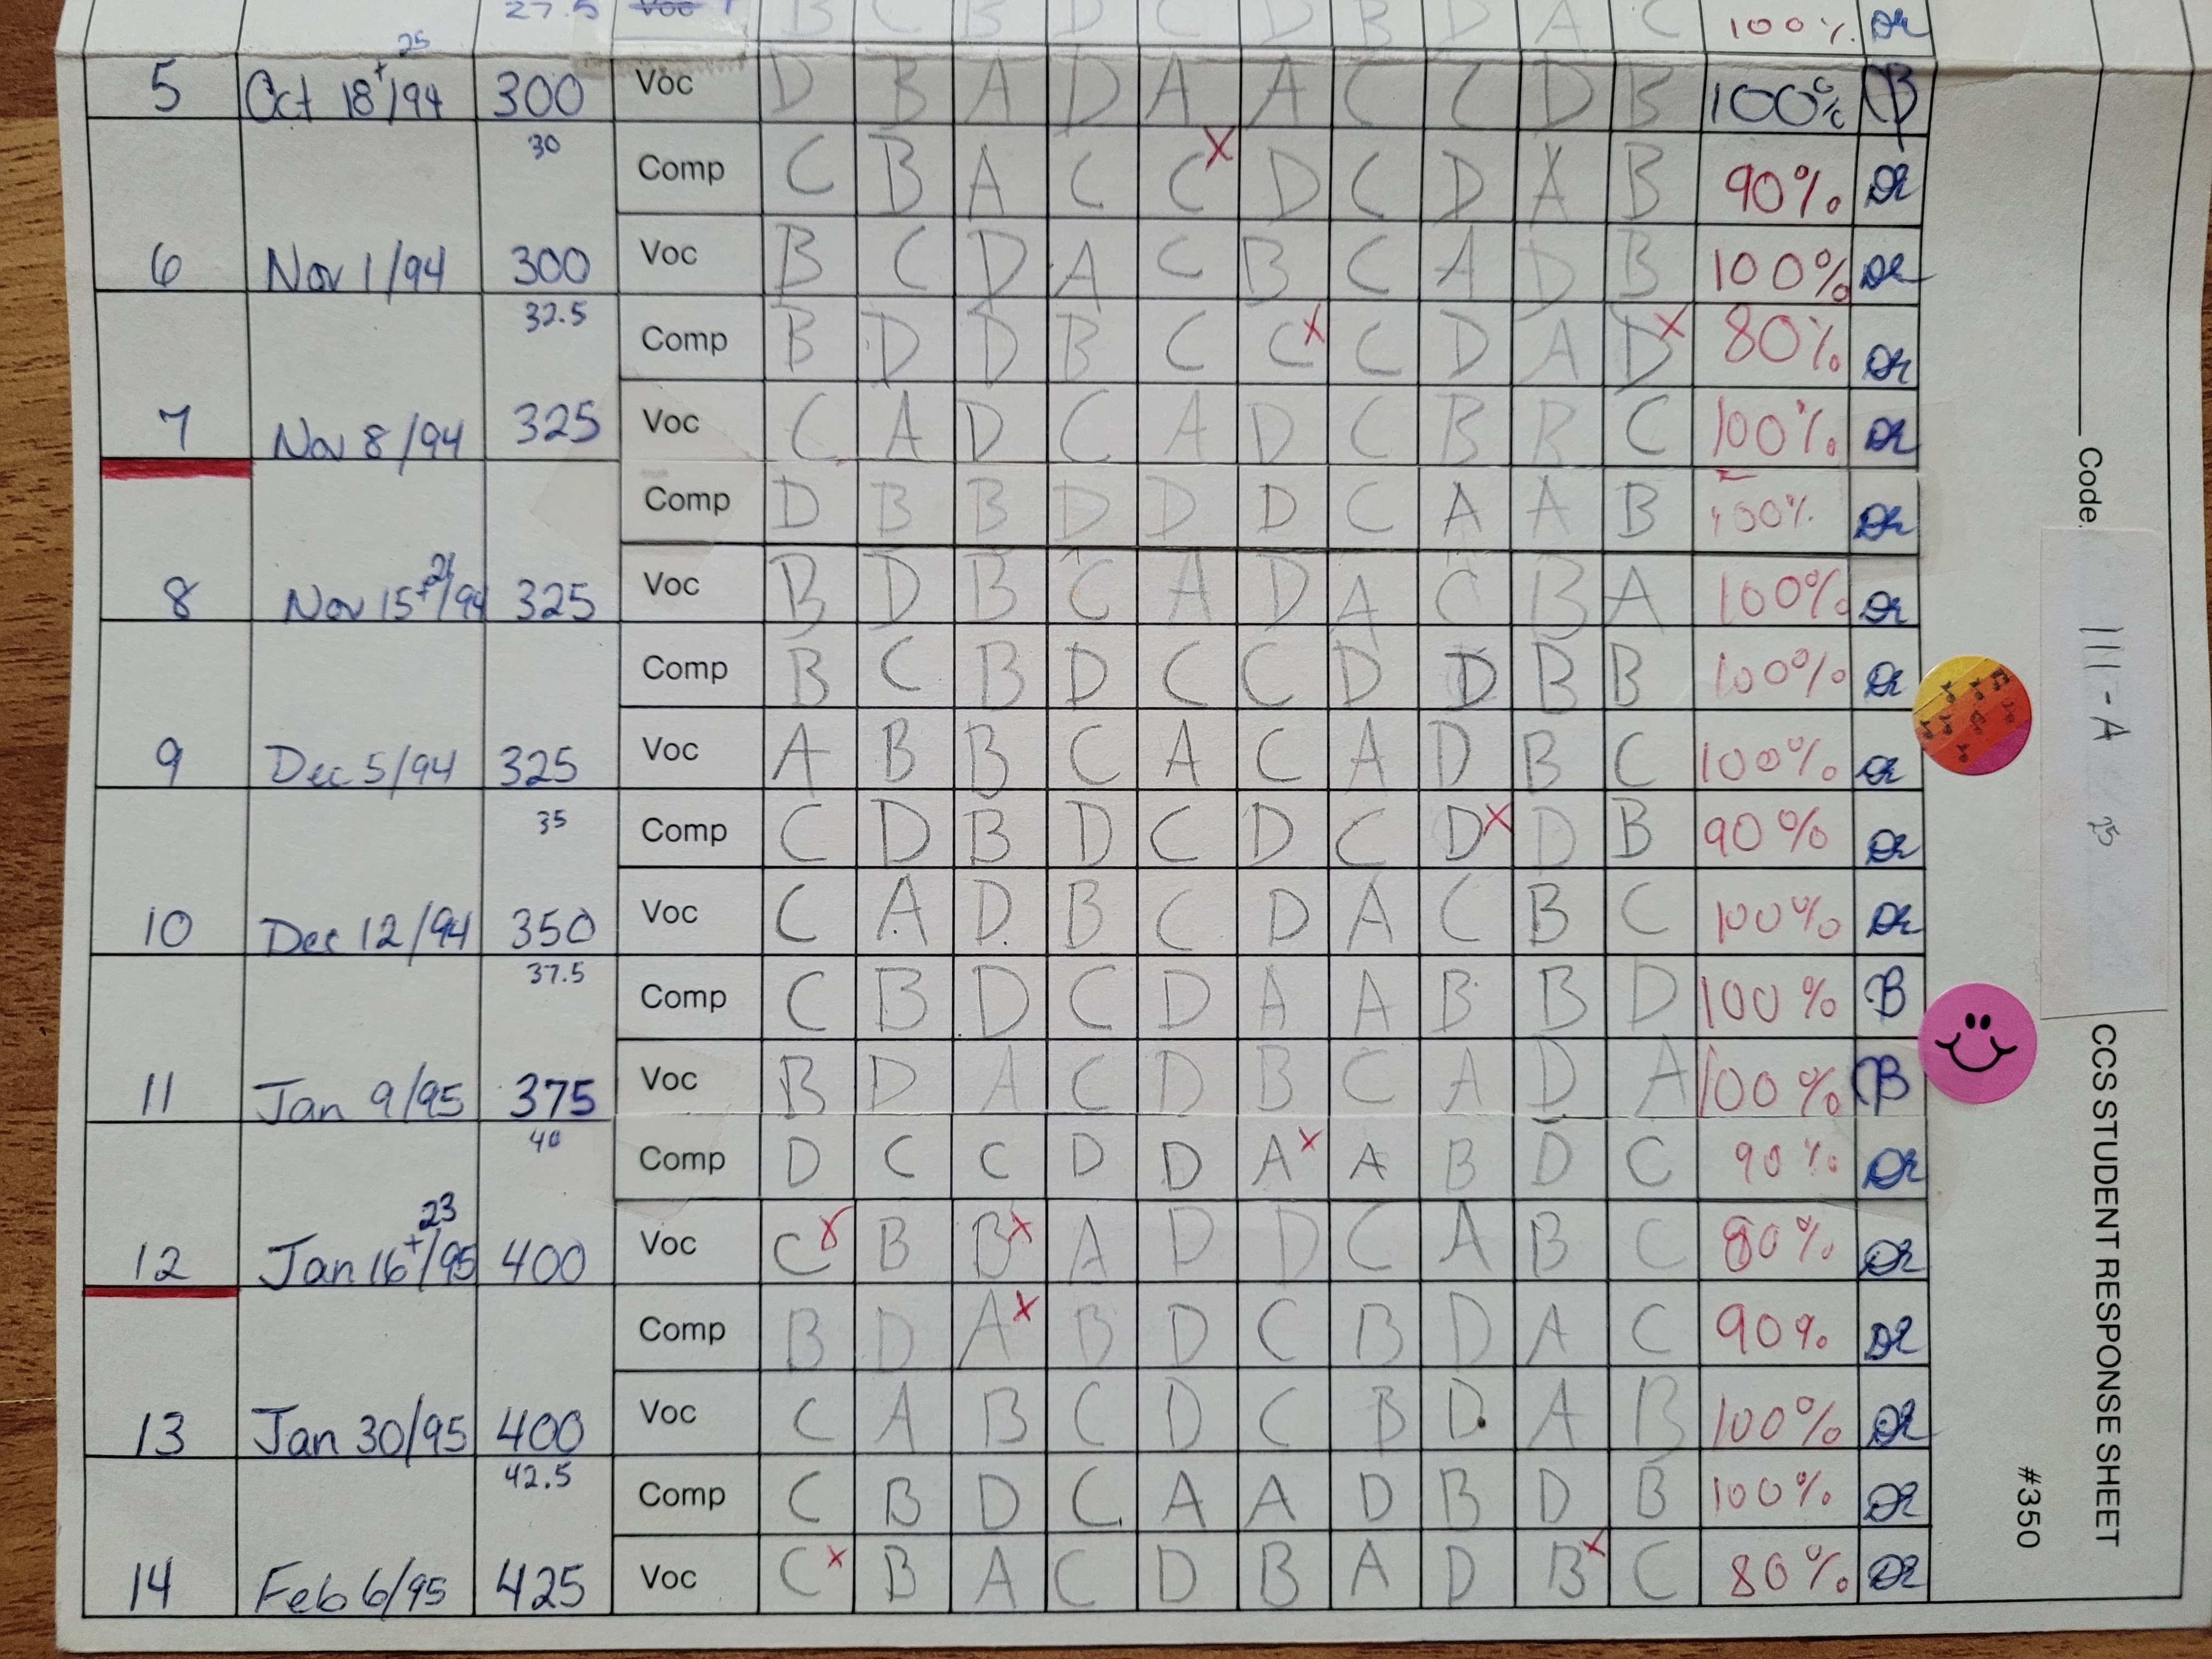 27.5 Voc B C B D C D B D A C 100% DR
25
5 Oct 18+/94 300 Voc D B A D A A C C D B 100% B
30 Comp C B A C C X D C D A B 90% DR
6 Nov 1/94 300 Voc B C D A C B C A D B 100% DR
32.5 Comp B D D B C C X C D A D X 80% DR
7 Nov 8/94 325 Voc C A D C A D C B B C 100% DR
Comp D B B D D D C A A B 100% DR
8 Nov 15+21/94 325 Voc B D B C A D A C B A 100% DR
Comp B C B D C C D D B B 100% DR
9 Dec 5/94 325 Voc A B B C A C A D B C 100% DR
35 Comp C D B D C D C D X D B 90% DR
10 Dec 12/94 350 Voc C A D B C D A C B C 100% DR
37.5 Comp C B D C D A A B B D 100% B
11 Jan 9/95 375 Voc B D A C D B C A D A 100% B
40 Comp D C C D D A X A B D C 90% DR
12 Jan 16+23/95 400 Voc C X B B X A D D C A B C 80% DR
Comp B D A X B D C B D A C 90% DR
13 Jan 30/95 400 Voc C A B C D C B D A B 100% DR
42.5 Comp C B D C A A D B D B 100% DR
14 Feb 6/95 425 Voc C X B A C D B A D B X C 80% DR
Code
111-A
25
CCS STUDENT RESPONSE SHEET
#350